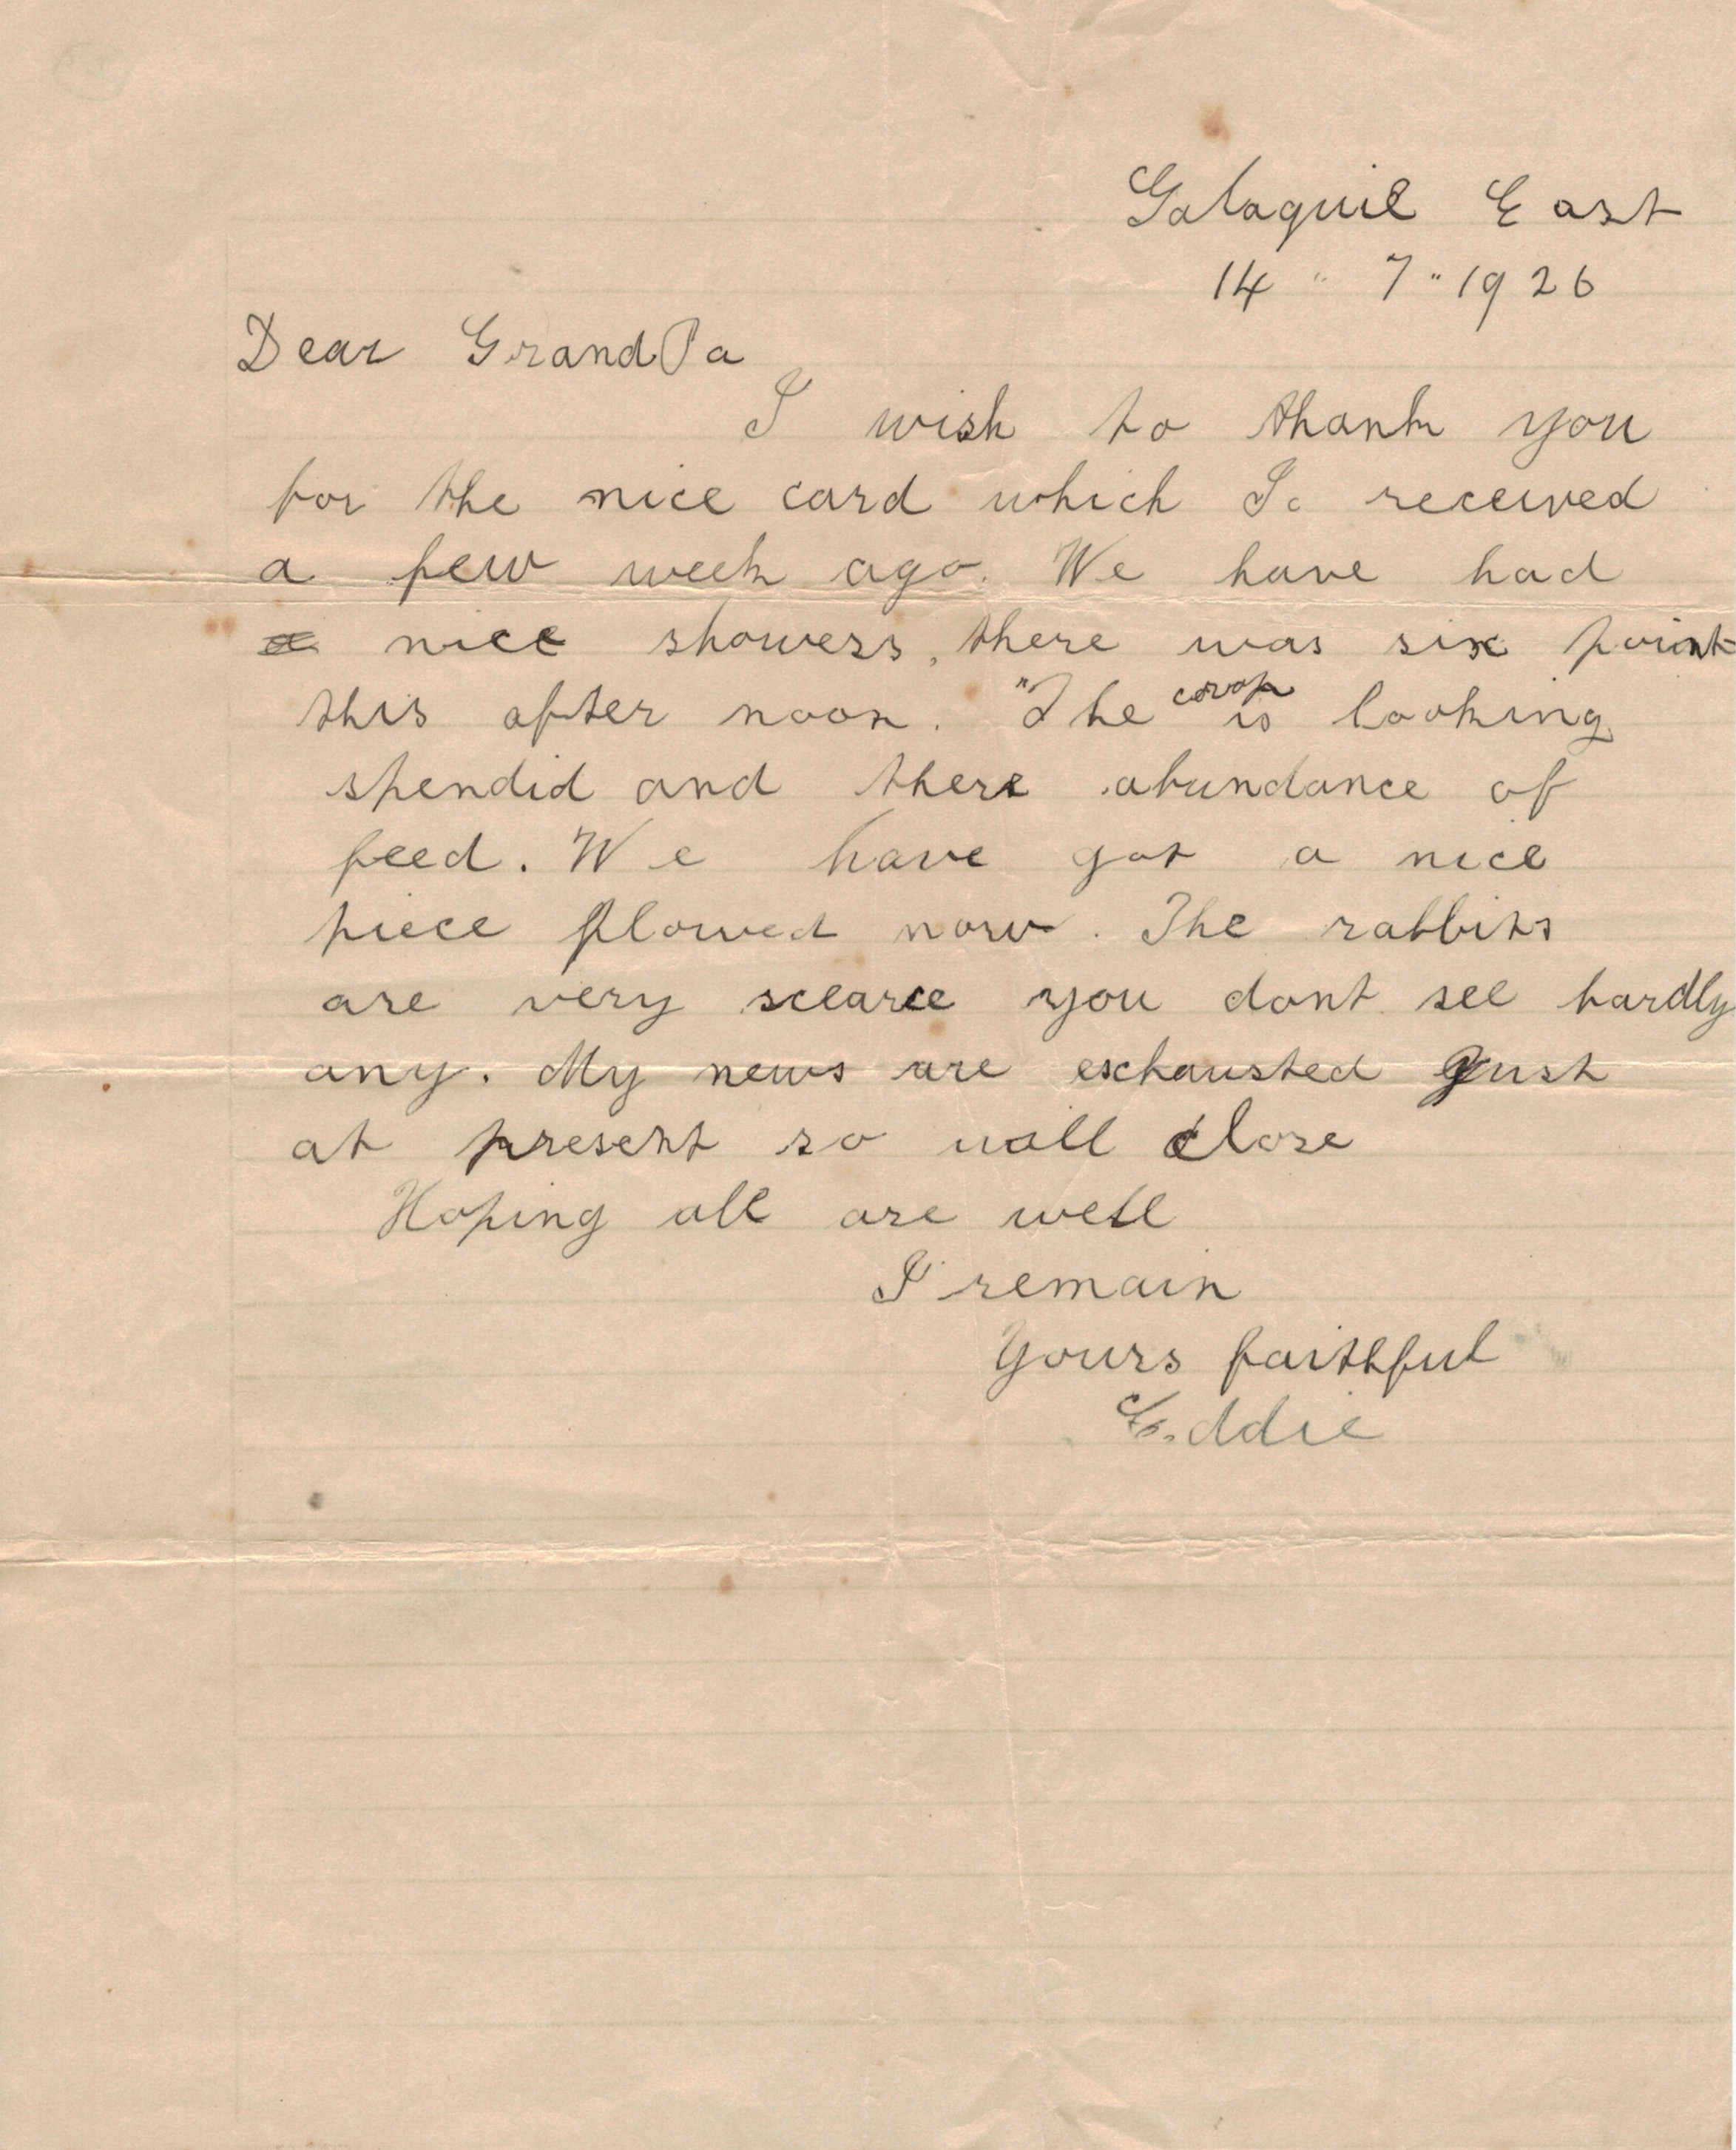 Galaquil East
14 " 7 " 1926
Dear GrandPa
I wish to thank you
for the nice card which I received
a few week ago. We have had
a nice showers, there was six point
this after noon. "The crop is looking
spendid and there abundance of
feed. We have got a nice
piece plowed now. The rabbits
are very scearce you dont see hardly
any. My news are exchausted just
at present so will close
Hoping all are well
I remain
Yours faithful
Eddie